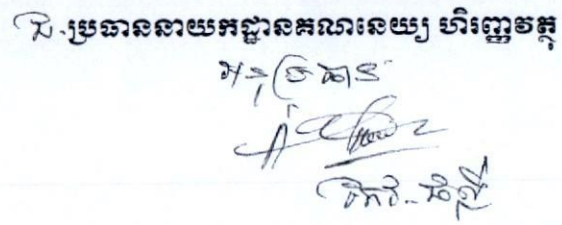 ជ.ប្រធាននាយកដ្ឋានគណនេយ្យ ហិរញ្ញវត្ថុ
អនុប្រធាន